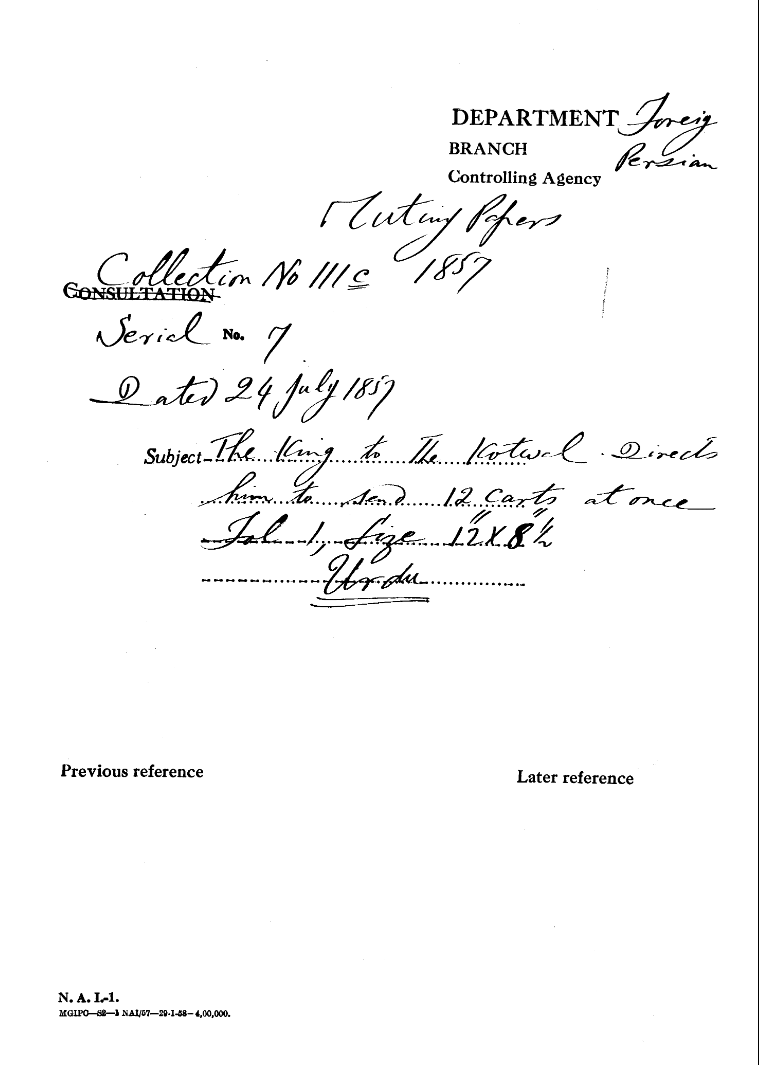 DEPARTMENT Foreig
BRANCH Persian
Controlling Agency
Mutiny Papers
Collection No III c 1857
CONSULTATION
Serial No. 7
Dated 24 July 1857
Subject The King to The Kotwal. Directs
him to send 12 carts at once
Fol 1, Size 12" X 8"½
Urdu
Previous reference
Later reference
N. A. I.-1.
MGIPC—S2—1 NAI/57—29-1-58—4,00,000.